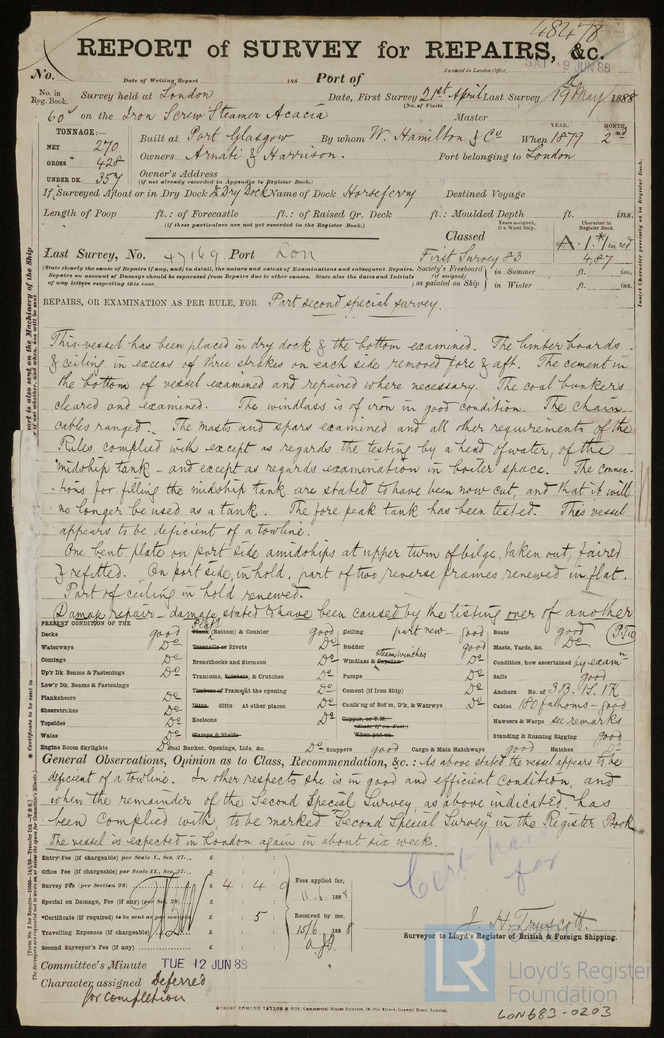 48478
REPORT of SURVEY for REPAIRS, &c.
No.
Date of Writing Report 188
Port of
Received in London Office,
SAT 9 JUN 88
No. in Reg. Book.
Survey held at London
Date, First Survey 21st April Last Survey 19th May 1888
(No. of Visits
60 on the Iron Screw Steamer Acacia
Master
TONNAGE:—
NET 270
GROSS 428
UNDER DK. 357
Built at Port Glasgow By whom W. Hamilton & Co When 1879 2nd
YEAR. MONTH.
Owners Arnati & Harrison.
Port belonging to London
Owner's Address
(if not already recorded in Appendix to Register Book.)
If Surveyed Afloat or in Dry Dock Dry Dock Name of Dock Horseferry
Destined Voyage
Length of Poop ft.: of Forecastle ft.: of Raised Qr. Deck ft.: Moulded Depth ft. ins.
(if these particulars are not yet recorded in the Register Book.)
Years assigned, if a Wood Ship.
Character in Register Book.
Classed
A.1.* in red
Last Survey, No. 47169 Port Lon
First Survey 83
4,87
(State clearly the cause of Repairs if any, and, in detail, the nature and extent of Examinations and subsequent Repairs.
Repairs on account of Damage should be separated from Repairs due to other causes. State also the dates and Initials
of any letters respecting this case.
Society's Freeboard (if assigned) as painted on Ship
in Summer ft. ins.
in Winter ft. ins.
REPAIRS, OR EXAMINATION AS PER RULE, FOR Part second special survey.
This vessel has been placed in dry dock & the bottom examined. The limber boards
& ceiling in excess of three strakes on each side removed fore & aft. The cement in
the bottom of vessel examined and repaired where necessary. The coal bunkers
cleared and examined. The windlass is of iron in good condition. The chain
cables ranged. The masts and spars examined and all other requirements of the
Rules complied with except as regards the testing by a head of water, of the
midship tank — and except as regards examination in boiler space. The connec-
-tions for filling the midship tank are stated to have been now cut, and that it will
no longer be used as a tank. The fore peak tank has been tested. This vessel
appears to be deficient of a towline.
One bent plate on port side amidships at upper turn of bilge, taken out, faired
& refitted. On port side, in hold, part of two reverse frames renewed in flat.
Part of ceiling in hold renewed.
Damage repair — damage stated to have been caused by the listing over of another
(P.T.O)
PRESENT CONDITION OF THE
Decks good
Waterways Do
Comings Do
Up'r Dk. Beams & Fastenings Do
Low'r Dk. Beams & Fastenings
Planksheers Do
Sheerstrakes Do
Topsides Do
Wales Do
Engine Room Skylights Do
Plank (Bottom) & Counter good
Treenails or Rivets Do
Breasthooks and Stemson Do
Transoms, Pointers, & Crutches Do
Timbers of Frame at the opening Do
Ditto ditto at other places Do
Keelsons Do
Clamps & Shelfs
Coal Bunker, Openings, Lids, &c. Do
Ceiling part new — good
Rudder good
steam winches
Windlass & Capstan Do
Pumps Do
Cement (if Iron Ship) Do
Caulk'ng of Bot'm, D'k, & Watrwys Do
Copper, or Y.M.
When put on
Scuppers good
Cargo & Main Hatchways good
Boats good
Masts, Yards, &c. Do
Condition, how ascertained by exam'n
Sails good
Anchors No. of 3B. 1S. 1K
Cables 180 fathoms — good
Hawsers & Warps see remarks
Standing & Running Rigging good
Hatches Do
General Observations, Opinion as to Class, Recommendation, &c.: As above stated the vessel appears to be
deficient of a towline. In other respects she is in good and efficient condition, and
when the remainder of the Second Special Survey, as above indicated, has
been complied with, to be marked "Second Special Survey" in the Register Book
The vessel is expected in London again in about six weeks.
Entry Fee (if chargeable) per Scale I., Sec. 27... £
Office Fee (if chargeable) per Scale II., Sec. 27... £
Survey Fee (per Section 28) £ 4 4
Special or Damage, Fee (if any) (per Sec. 28) £
*Certificate (if required) to be sent as per margin £ 5
Travelling Expenses (if chargeable) £
Second Surveyor's Fee (if any) £
Fees applied for,
11.6.1888
Received by me,
15/6 1888
Cert
for
J. H. Truscott.
Surveyor to Lloyd's Register of British & Foreign Shipping.
Committee's Minute TUE 12 JUN 88
Character assigned Deferred
for completion
ROBERT EDMUND TAYLOR & SON, Commercial Steam Printers, 19, Old Street, Goswell Road, London.
LR
Lloyd's Register
Foundation
LON683-0203
Insert Character precisely as in Register Book.